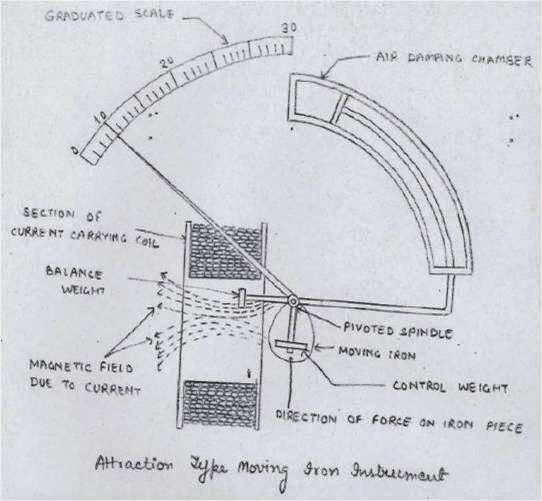 GRADUATED SCALE
30
20
10
0
AIR DAMPING CHAMBER
SECTION OF
CURRENT CARRYING COIL
BALANCE
WEIGHT
PIVOTED SPINDLE
MOVING IRON
MAGNETIC FIELD
DUE TO CURRENT
CONTROL WEIGHT
DIRECTION OF FORCE ON IRON PIECE
Attraction Type Moving Iron Instrument